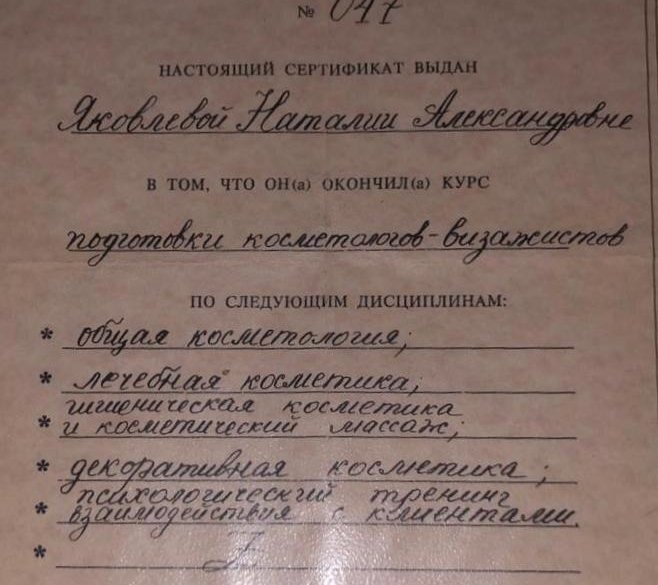 № 047
НАСТОЯЩИЙ СЕРТИФИКАТ ВЫДАН
Яковлевой Наталии Александровне
В ТОМ, ЧТО ОН(а) ОКОНЧИЛ(а) КУРС
подготовки косметологов-визажистов
ПО СЛЕДУЮЩИМ ДИСЦИПЛИНАМ:
* общая косметология;
* лечебная косметика;
гигиеническая косметика
* и косметический массаж;
* декоративная косметика;
психологический тренинг
* взаимодействия с клиентами.
*